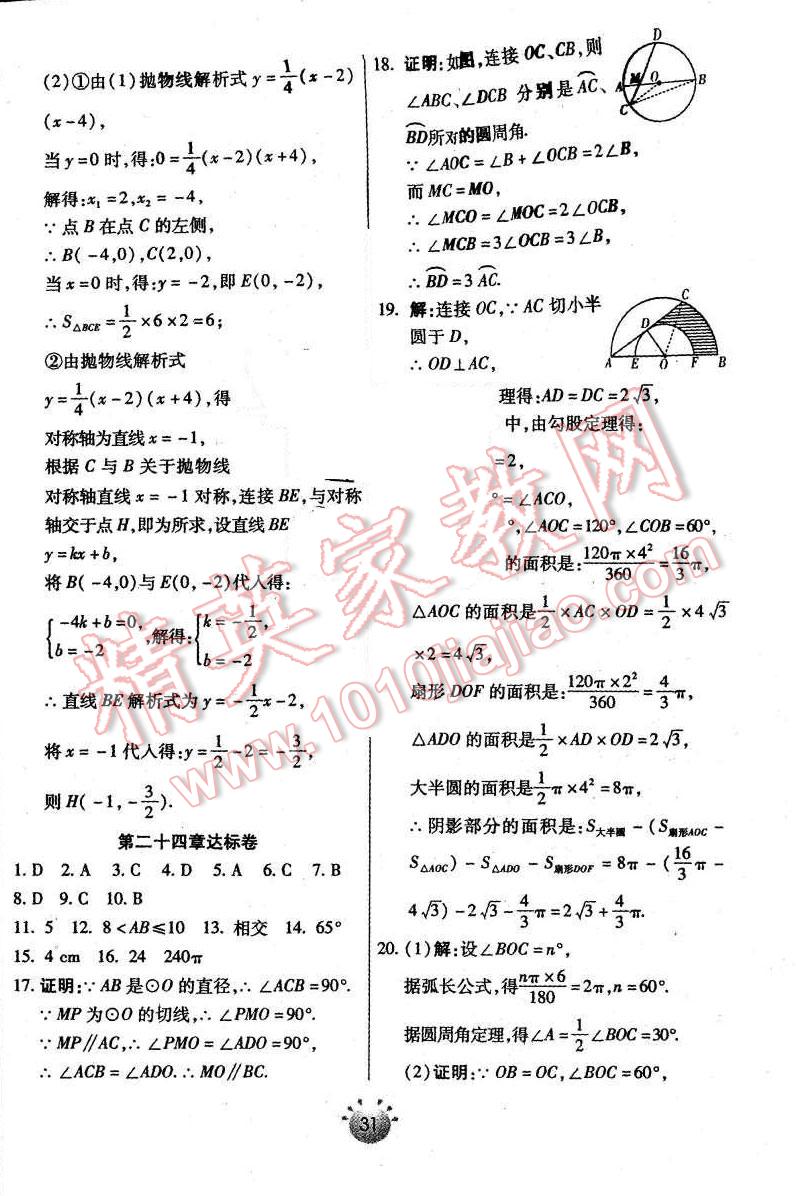 (2)①由(1)抛物线解析式 y=1/4(x-2)
(x-4),
当 y=0 时,得:0=1/4(x-2)(x+4),
解得:x₁=2,x₂=-4,
∵点 B 在点 C 的左侧,
∴B(-4,0),C(2,0),
当 x=0 时,得:y=-2,即 E(0,-2),
∴S△BCE=1/2×6×2=6;
②由抛物线解析式
y=1/4(x-2)(x+4),得
对称轴为直线 x=-1,
根据 C 与 B 关于抛物线
对称轴直线 x=-1 对称,连接 BE,与对称
轴交于点 H,即为所求,设直线 BE
y=kx+b,
将 B(-4,0)与 E(0,-2)代人得:
{-4k+b=0, b=-2 ,解得:{k=-1/2, b=-2
∴直线 BE 解析式为 y=-1/2x-2,
将 x=-1 代人得:y=1/2-2=-3/2,
则 H(-1,-3/2).
第二十四章达标卷
1. D 2. A 3. C 4. D 5. A 6. C 7. B
8. D 9. C 10. B
11. 5 12. 8<AB≤10 13. 相交 14. 65°
15. 4 cm 16. 24 240π
17. 证明:∵AB 是⊙O 的直径,∴∠ACB=90°.
∵MP 为⊙O 的切线,∴∠PMO=90°.
∵MP∥AC,∴∠PMO=∠ADO=90°,
∴∠ACB=∠ADO.∴MO∥BC.
18. 证明:如图,连接 OC、CB,则
∠ABC、∠DCB 分别是⌒AC、
⌒BD所对的圆周角.
∵∠AOC=∠B+∠OCB=2∠B,
而 MC=MO,
∴∠MCO=∠MOC=2∠OCB,
∴∠MCB=3∠OCB=3∠B,
∴⌒BD=3⌒AC.
D
A M O B
C
19. 解:连接 OC,∵AC 切小半
圆于 D,
∴OD⊥AC,
C
D
A E O F B
理得:AD=DC=2√3,
中,由勾股定理得:
=2,
°=∠ACO,
°,∠AOC=120°,∠COB=60°,
的面积是:120π×4²/360=16/3π,
△AOC 的面积是1/2×AC×OD=1/2×4√3
×2=4√3,
扇形 DOF 的面积是:120π×2²/360=4/3π,
△ADO 的面积是1/2×AD×OD=2√3,
大半圆的面积是1/2π×4²=8π,
∴阴影部分的面积是:S大半圆-(S扇形AOC-
S△AOC)-S△ADO-S扇形DOF=8π-(16/3π-
4√3)-2√3-4/3π=2√3+4/3π.
20. (1)解:设∠BOC=n°,
据弧长公式,得nπ×6/180=2π,n=60°.
据圆周角定理,得∠A=1/2∠BOC=30°.
(2)证明:∵OB=OC,∠BOC=60°,
31
精英家教网
www.1010jiajiao.com